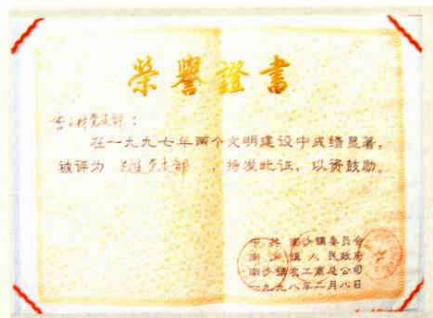 荣誉證書
村党支部：
在一九九七年两个文明建设中成绩显著，
被评为 党支部 ，特发此证，以资鼓励。
中共南沙镇委员会
南沙镇人民政府
南沙镇农工商总公司
一九九八年二月八日